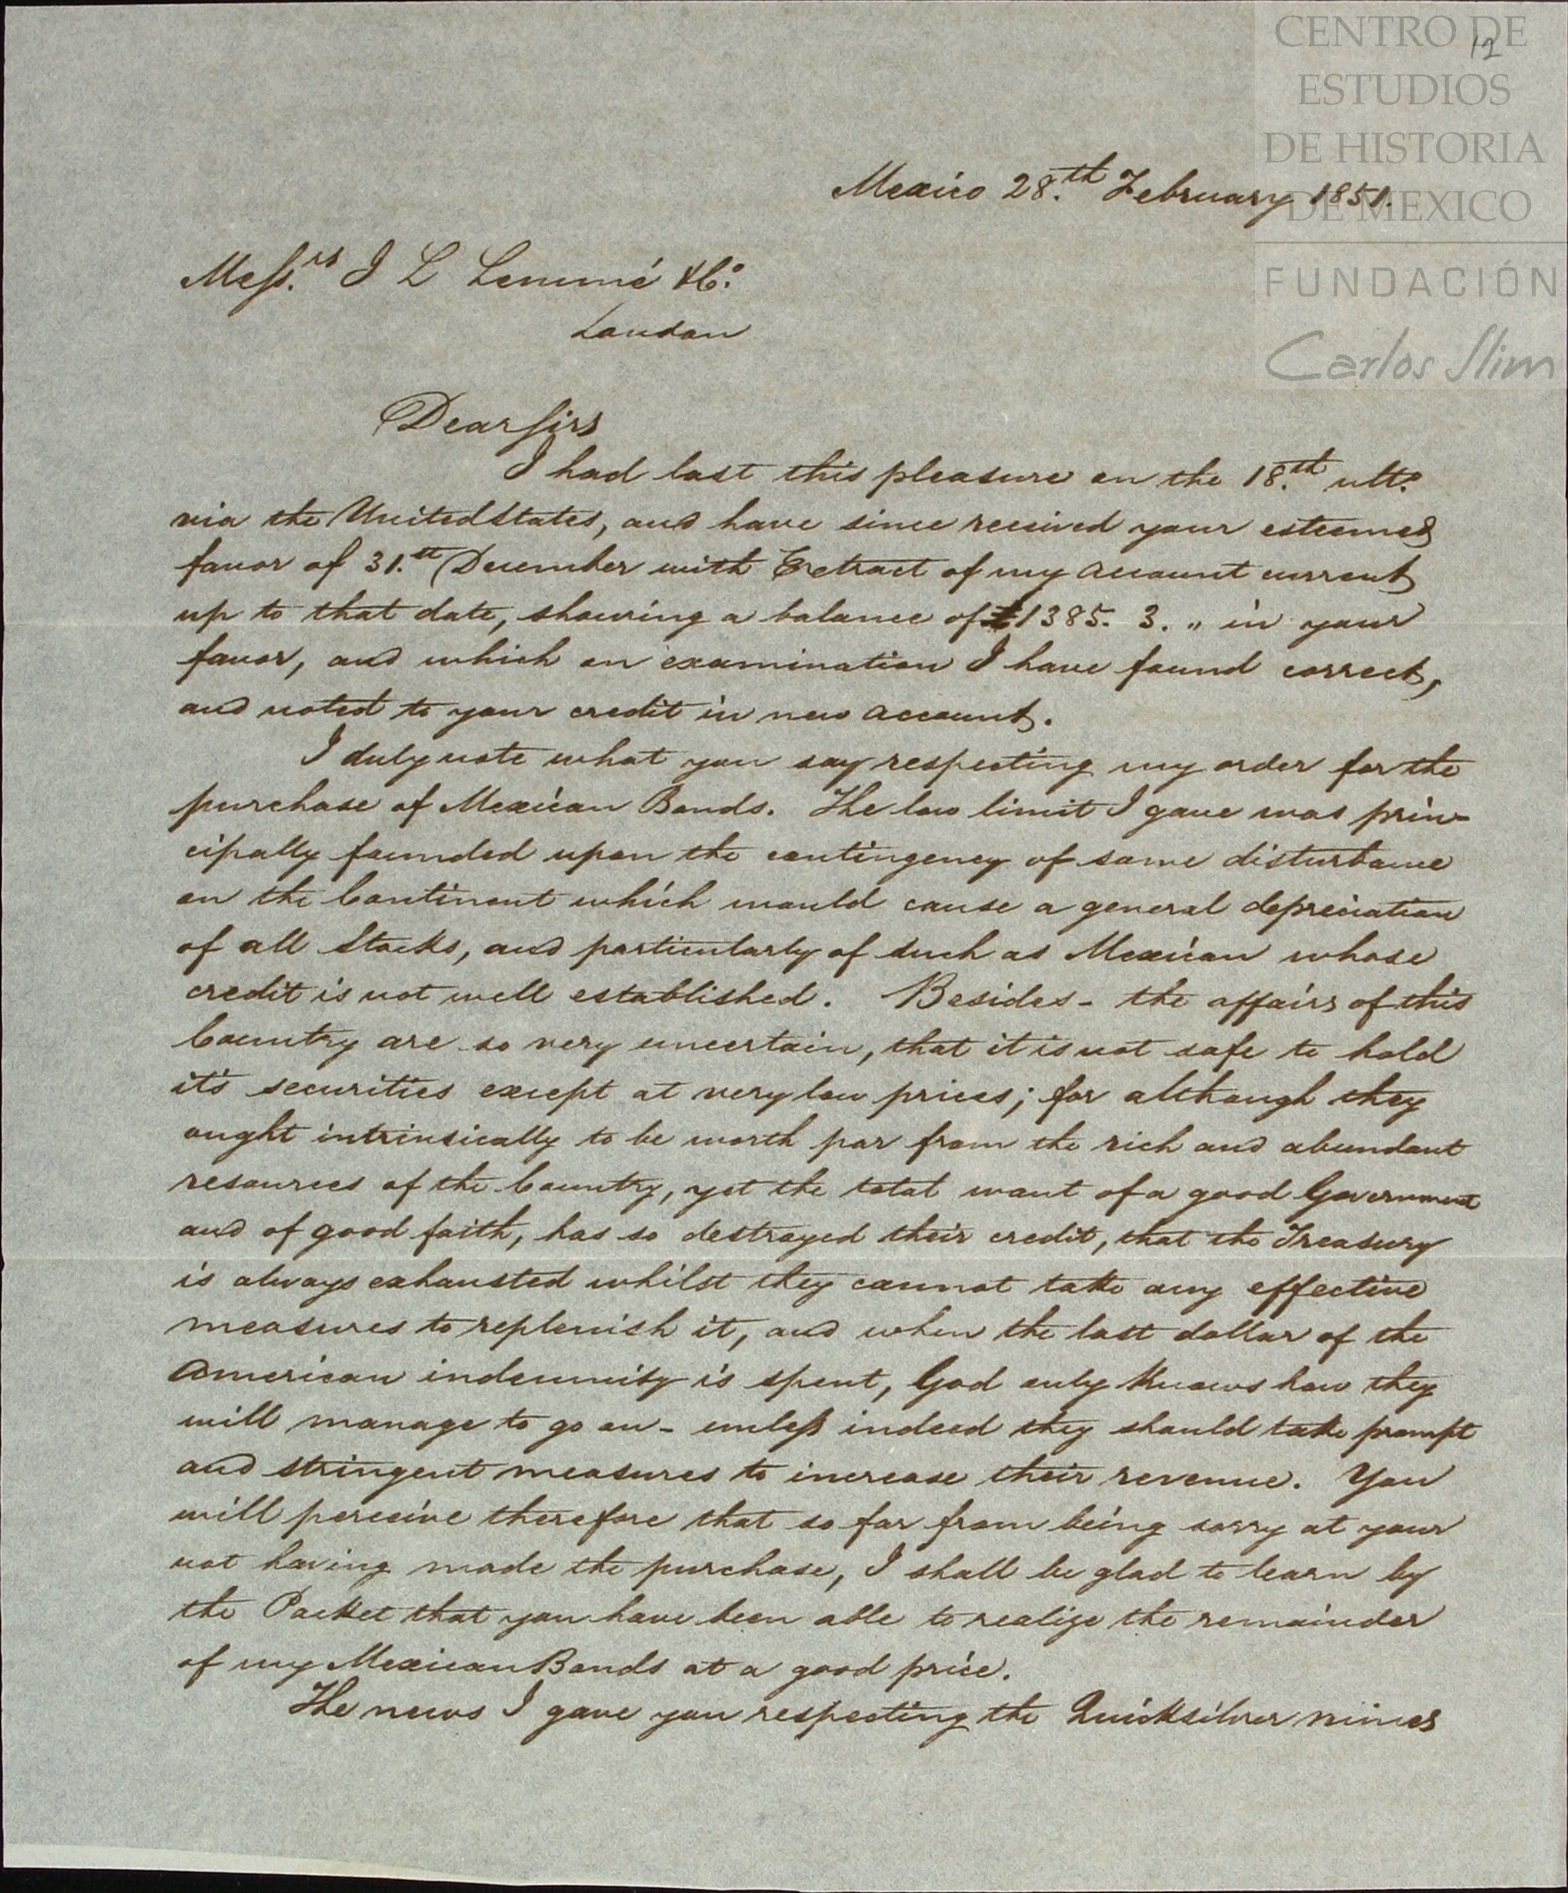 CENTRO DE
12
ESTUDIOS
DE HISTORIA
DE MEXICO
FUNDACIÓN
Carlos Slim
Mexico 28.th February 1851.
Mess.rs J L Lemmé & Co.
London
Dear Sirs
I had last this pleasure on the 18.th ulto.
via the United States, and have since received your esteemed
favor of 31.st December with Extract of my account current
up to that date, showing a balance of £1385. 3. „ in your
favor, and which on examination I have found correct,
and noted to your credit in new account.
I duly note what you say respecting my order for the
purchase of Mexican Bonds. The low limit I gave was prin-
cipally founded upon the contingency of some disturbance
on the Continent which would cause a general depreciation
of all Stocks, and particularly of such as Mexican whose
credit is not well established. Besides - the affairs of this
Country are so very uncertain, that it is not safe to hold
it's securities except at very low prices; for although they
ought intrinsically to be worth par from the rich and abundant
resources of the Country, yet the total want of a good Government
and of good faith, has so destroyed their credit, that the Treasury
is always exhausted whilst they cannot take any effective
measures to replenish it, and when the last dollar of the
American indemnity is spent, God only knows how they
will manage to go on - unless indeed they should take prompt
and stringent measures to increase their revenue. You
will perceive therefore that so far from being sorry at your
not having made the purchase, I shall be glad to learn by
the Packet that you have been able to realize the remainder
of my Mexican Bonds at a good price.
The news I gave you respecting the Quicksilver mines